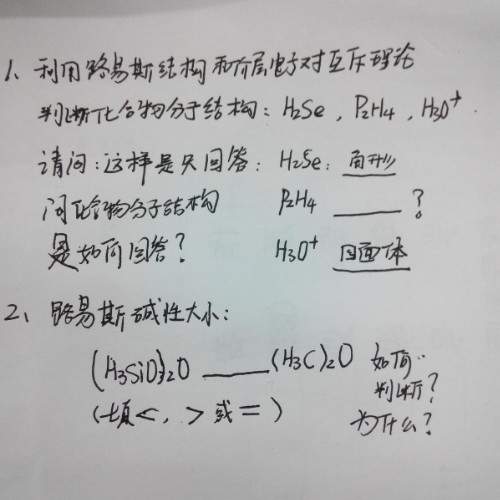 1、利用路易斯结构和价层电子对互斥理论
判断化合物分子结构：H2Se，P2H4，H3O+.
请问：这样是只回答：H2Se：角形
问化合物分子结构 P2H4 ____？
是如何回答？ H3O+ 四面体
2、路易斯碱性大小：
(H3SiO)2O ____(H3C)2O 如何..
(填<，>或=) 判断？
为什么？